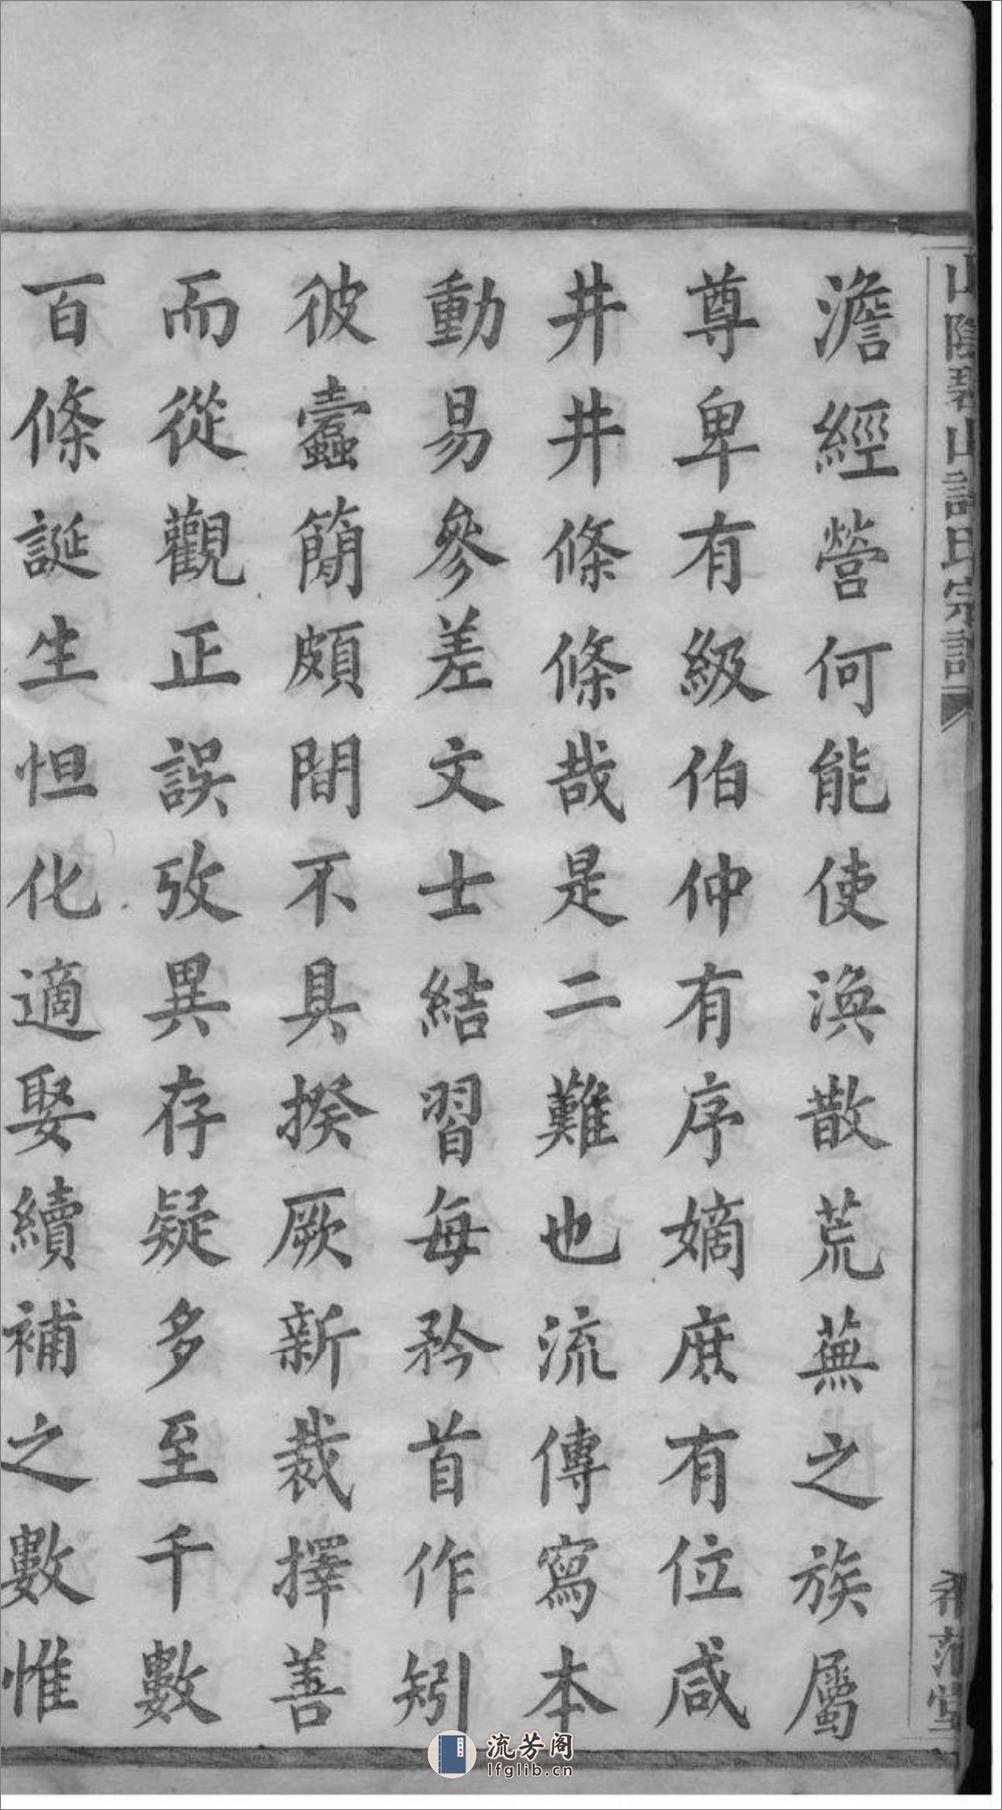 山陰碧山許氏宗譜
希范堂
澹經營何能使渙散荒蕪之族屬
尊卑有級伯仲有序嫡庶有位咸
井井條條哉是二難也流傳寫本
動易參差文士結習每矜首作矧
彼蠧簡頗間不具揆厥新裁擇善
而從觀正誤攷異存疑多至千數
百條誕生怛化適娶續補之數惟
流芳阁
lfglib.cn